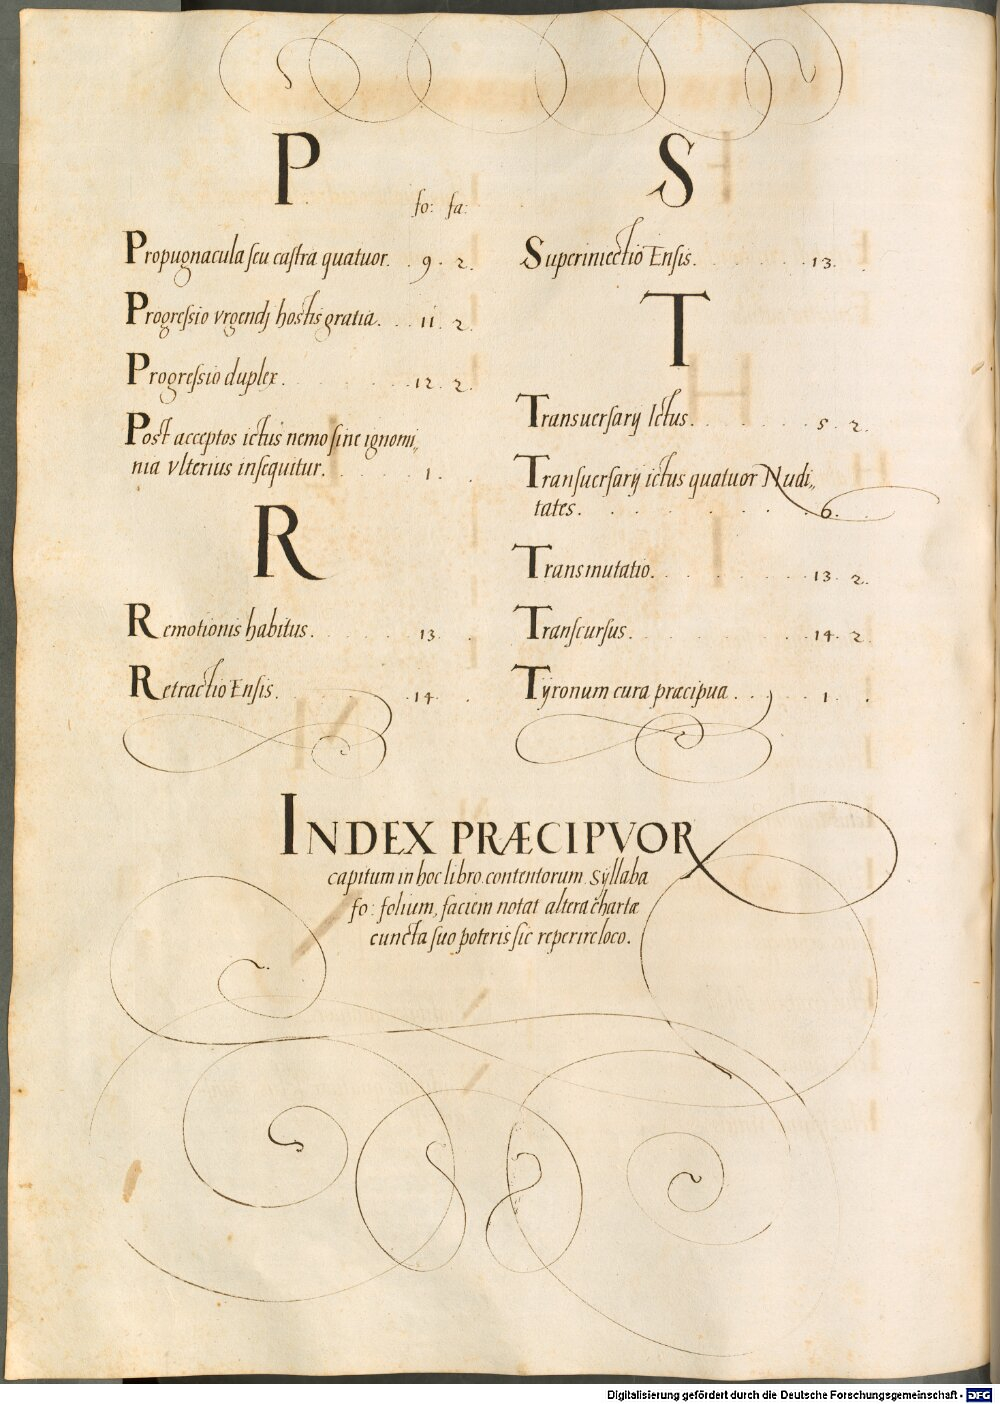 P
fo: fa:
Propugnacula seu castra quatuor. . 9 . 2.
Progressio vrgendj hostis gratia. . . 11 . 2.
Progressio duplex. . . . . . 12. 2.
Post acceptos ictus nemo sine ignomi„
nia vlterius insequitur. . . . . 1. .
R
Remotionis habitus. . . . . . 13 .
Retractio Ensis. . . . . . 14 .
S
Superiniectio Ensis. . . . . . . 13. .
T
Transuersarij Ictus. . . . . . . 5. 2.
Transuersarij ictus quatuor Nudi„
tates. . . . . . . . 6. .
Transmutatio. . . . . . . . 13. 2.
Transcursus. . . . . . . . . 14. 2.
Tÿronum cura præcipua . . . . . 1. .
INDEX PRÆCIPVOR
capitum in hoc libro contentorum. Sÿllaba
fo: folium, faciem notat altera chartæ
cuncta suo poteris sic reperire loco.
Digitalisierung gefördert durch die Deutsche Forschungsgemeinschaft - DFG